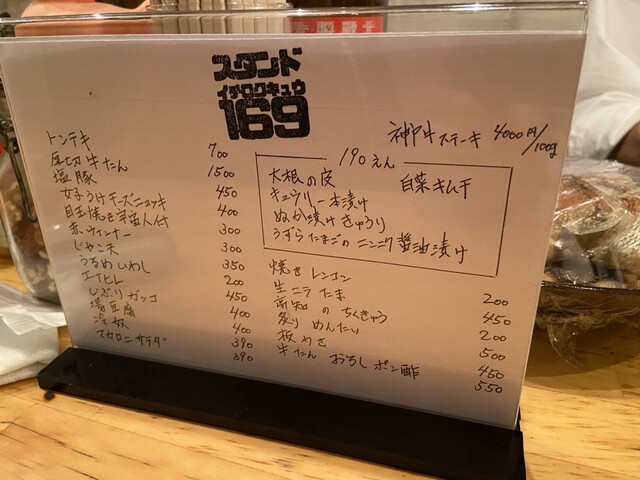 スタンド
イチロクキュウ
169
神戸牛ステーキ 4000円/100g
トンテキ 700
厚切牛たん 1500
塩豚 450
女子うけチーズニョッキ 400
目玉焼き宇宙人付 300
赤ウィンナー 300
じゃこ天 350
うるめいわし 200
エイヒレ 450
いぶりガッコ 400
湯豆腐 400
冷奴 390
マカロニサラダ 390
190えん
大根の皮 白菜キムチ
キュウリ一本漬け
ぬか漬けきゅうり
うずらたまごのニンニク醤油漬け
焼きレンコン 200
生ニラたま 450
高知のちくきゅう 200
炙りめんたい 500
板わさ 450
牛たんおろしポン酢 550